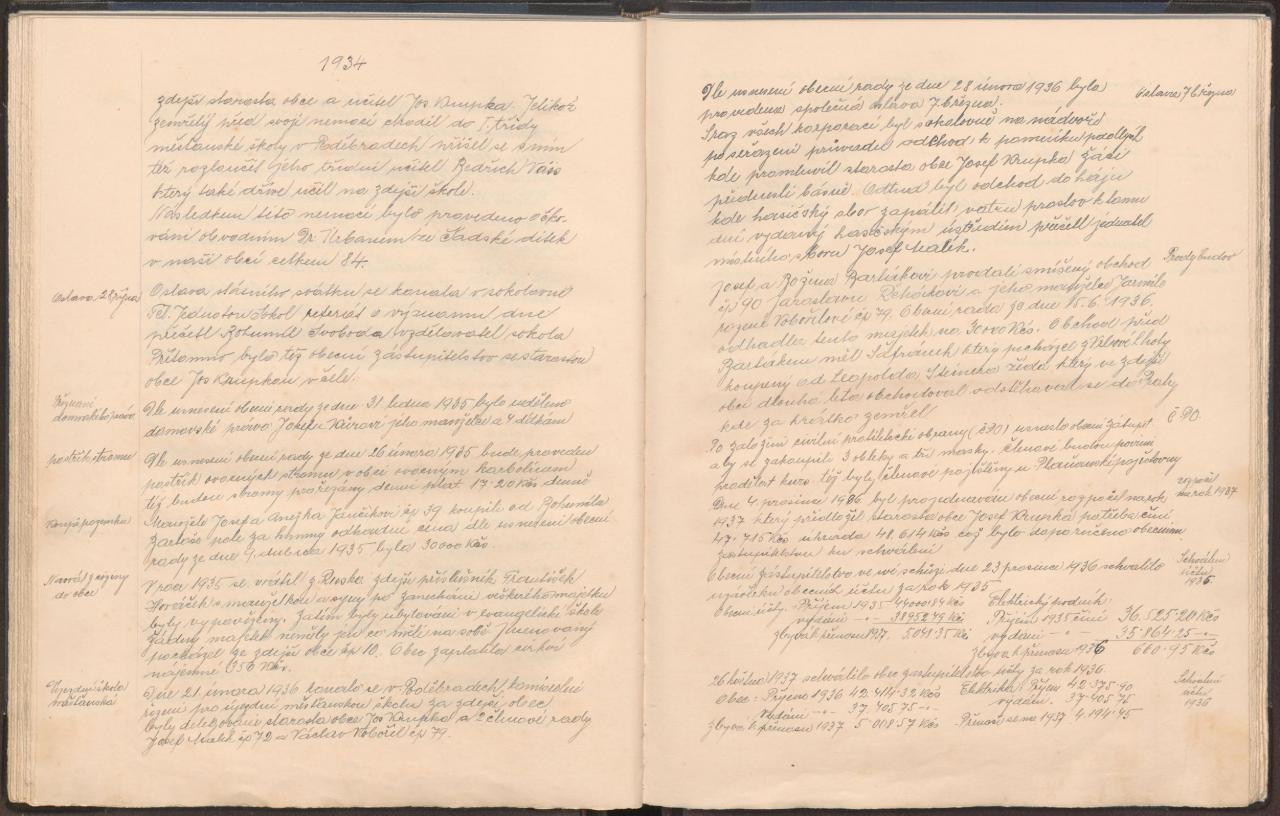 1934
zdejší starosta obce a učitel Jos Krupka. Jelikož
zemřelý před svojí nemocí chodil do I. třídy
měšťanské školy v Poděbradech přišel se s ním
též rozloučit jeho třídní učitel Bedřich Váss
který také dříve učil na zdejší škole.
Následkem této nemoci bylo provedeno očko-
vání obvodním Dr. Urbanem ze Sadské dítek
v naší obci celkem 84.
Oslava 28 října
Oslava státního svátku se konala v sokolovně
Těl. Jednotou Sokol referát o významu dne
přečetl Bohumil Svoboda vzdělavatel sokola
Přítomno bylo též obecní zastupitelstvo se starostou
obce Jos Krupkou v čele.
Přiznání
domovského práva
Dle usnesení obecní rady ze dne 31. ledna 1935 bylo uděleno
domovské právo Josefu Kůrovi jeho manželce a 4 dítkám
postřik stromů
Dle usnesení obecní rady ze dne 26 února 1935 bude proveden
postřik ovocných stromů v obci ovocným karbolineem
též budou stromy prořezány denní plat 17-20 Kčs denně
Koupě pozemku
Manželé Josef a Anežka Jančíkovi čp 39 koupili od Bohumila
pole za hranný odhadní cena dle usnesení obecní
rady ze dne 9. dubna 1935 byla 30000 Kčs.
Návrat z ciziny
do obce
V roce 1935 se vrátil z Ruska zdejší příslušník František
Horáček s manželkou a syny po zanechání veškerého majetku
byli vypovězeni. Zatím byli ubytováni v evangelické škole
žádný majetek neměli jen co měli na sobě Jmenovaný
pocházel ze zdejší obce čp 10. Obec zaplatila církvi
nájemné 356 Kčs.
Újezdní škola
měšťanská
Dne 21. února 1936 konalo se v Poděbradech komisionelní
řízení pro újezdní měšťanskou školu za zdejší obec
byli delegováni starosta obce Jos Krupka a 2 členové rady
Josef Malík čp 72 a Václav Vobořil čp 79.
Dle usnesení obecní rady ze dne 28 února 1936 byla
provedena společná oslava 7. března.
Oslava 7 března
Sraz všech korporací byl v sokolovně na nádvoří
po seřazení průvodu odchod k pomníku padlých
kde promluvil starosta obce Josef Krupka žáci
přednesli básně. Odtud byl odchod do háju
kde hasičský sbor zapálil vatru proslov k tomu
dni vydaný hasičským ústředím přečetl jednatel
místního sboru Josef Malík.
Prodej budov
Josef a Božena Bartákovi prodali smíšený obchod
čp 90 Jaroslavu Řehákovi a jeho manželce Jarmile
rozené Vobořilové čp 79. Obecní rada ze dne 15.6. 1936.
odhadla tento majetek na 30000 Kčs. Obchod před
Bartákem měl Šafránek který pocházel z Velové Lhoty
koupený od Leopolda Steinera žida který ve zdejší
obci dlouhá léta obchodoval odstěhoval se do Prahy
kde za krátko zemřel
Č PO.
Po založení civilní protiletecké obrany (CPO) usneslo obecní zastupit.
aby se zakoupily 3 obleky a tři masky. Členové budou povinni
prodělat kurs. Též byli členové pojištěni u Plaňanské pojišťovny
rozpočet
na rok 1937
Dne 4. prosince 1936 byl projednáván obecní rozpočet na rok
1937 který předložil starosta obce Josef Krupka potřeba činí
47.715 Kčs úhrada 48.614 Kčs což bylo doporučeno obecnímu
zastupitelstvu ku schválení
Schválení
účtů
1935.
Obecní zastupitelstvo ve své schůzi dne 23 prosince 1936 schválilo
uzávěrku obecních účtů za rok 1935
Obecní účty. Příjem 1935 44000.84 Kčs
vydání -"- 38952.49 Kčs
zbývá k přenosu 1937. 5041.35 Kčs
Elektrický podnik:
Příjem 1935 činí 36.525.20 Kčs
vydání -"- 35.864.25 -"-
Zbývá k přenosu 1936 660.95 Kčs
Schválení
účtů
1936
26 května 1937 schválilo obec zastupitelstvo účty za rok 1936
Obec: Příjem 1936 42.414.32 Kčs
Vydání -"- 37.405.75 -"-
Zbývá k přenosu 1937 5.008.57 Kčs
Elektrika: Příjem 42.375.90
vydání. 37.405.75
Přenáší se na 1937 4.194.45